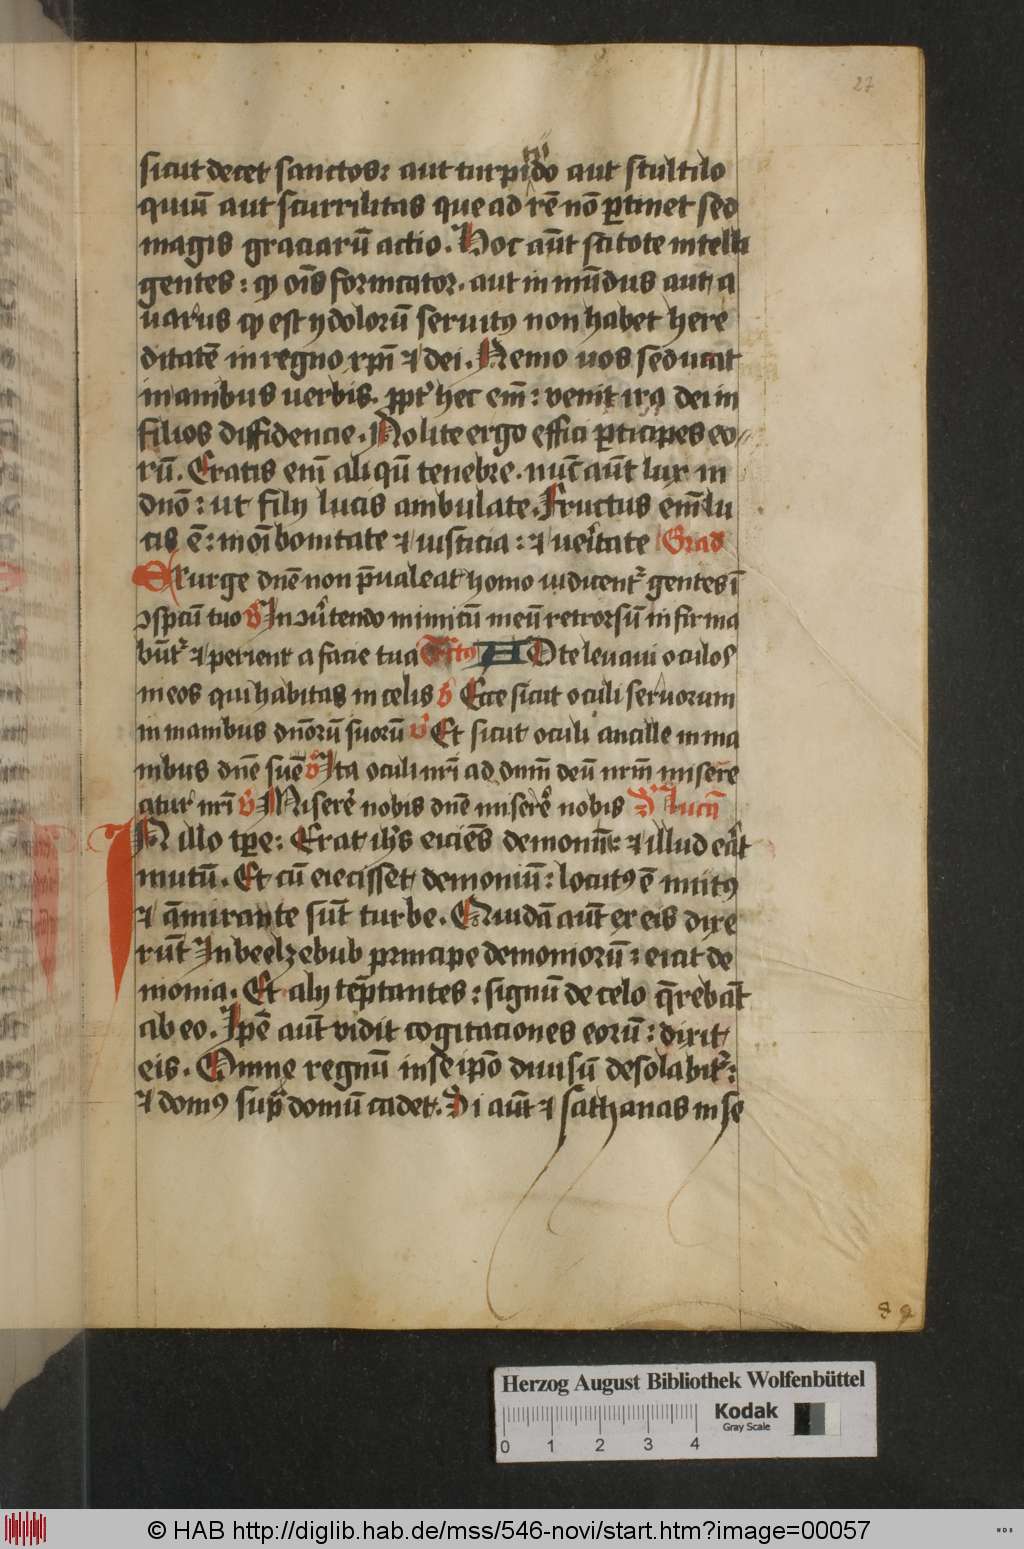 27
sicut decet sanctos: aut turpitudo aut stultilo
quiū aut scurrilitas que ad rē nō ꝑtinet sed
magis graciarū actio. Hoc aūt scitote intelli
gentes: ꝙ oīs fornicator. aut inmūdus aut a
uarus ꝙ est ydolorū seruitꝰ non habet here
ditatē in regno xpī ⁊ dei. Nemo uos seducat
inanibus uerbis. ꝓpt̉ hec em̄: venit ira dei in
filios diffidencie. Nolite ergo effici ꝑticipes eo⸗
rū. Eratis em̄ aliqū tenebre. nūc aūt lux in
dnō: ut filij lucis ambulate. Fructus em̄ lu
cis ē: in oī bonitate ⁊ iusticia: ⁊ ueritate Grad
Exurge dnē non p̄ualeat homo iudicent̉ gentes ī
ↄspcū tuo v̉ In ↄū̉tendo inimicū meū retrorsū infirma
būt̉ ⁊ perient a facie tua Tctꝰ AD te leuaui oculos
meos qui habitas in celis v̉ Ecce sicut oculi seruorum
in manibus dnōrū suorū v̉ Et sicut oculi ancille in ma
nibus dnē sue v̉ Ita oculi nrī ad dnm̄ deū nrm̄ misere
atur nrī v̉ Miserẻ nobis dnē miserẻ nobis S Lucā
IN illo tꝑe: Erat ihs̄ eiciēs demoniū: ⁊ illud erat
mutū. Et cū eiecisset demoniū: locutꝰ ē mutꝰ
⁊ am̄irante sūt turbe. Quidā aūt ex eis dixe
rūt In beelzebub principe demoniorū: eicit de
monia. Et alij tēptantes: signū de celo q̄rebāt
ab eo. Ipē aūt vidit cogitaciones eorū: dixit
eis. Omne regnū in seipō diuisū desolabit̉:
⁊ domꝰ supͣ domū cadet. Si aūt ⁊ sathanas in se
Herzog August Bibliothek Wolfenbüttel
0 1 2 3 4
Kodak
Gray Scale
© HAB http://diglib.hab.de/mss/546-novi/start.htm?image=00057